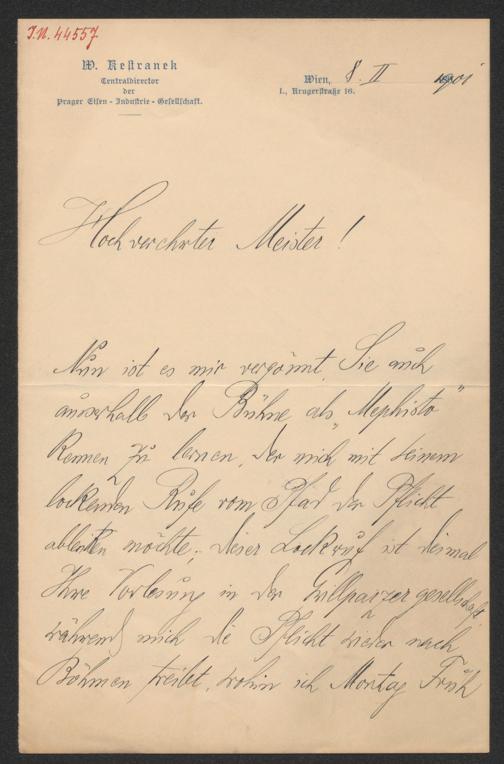 I.N. 44557
W. Kestranek
Centraldirector
der
Prager Eisen-Industrie-Gesellschaft.
Wien, 8. II 1901
I., Krugerstraße 16.
Hochverehrter Meister!
Nun ist es mir vergönnt, Sie auch
ausserhalb der Bühne als „Mephisto"
kennen zu lernen, der mich mit seinem
lockenden Rufe vom Pfad der Pflicht
ableiten möchte; dieser Lockruf ist diesmal
Ihre Vorlesung in der Grillparzergesellschaft,
während mich die Pflicht wieder nach
Böhmen treibt, wohin ich Montag Früh